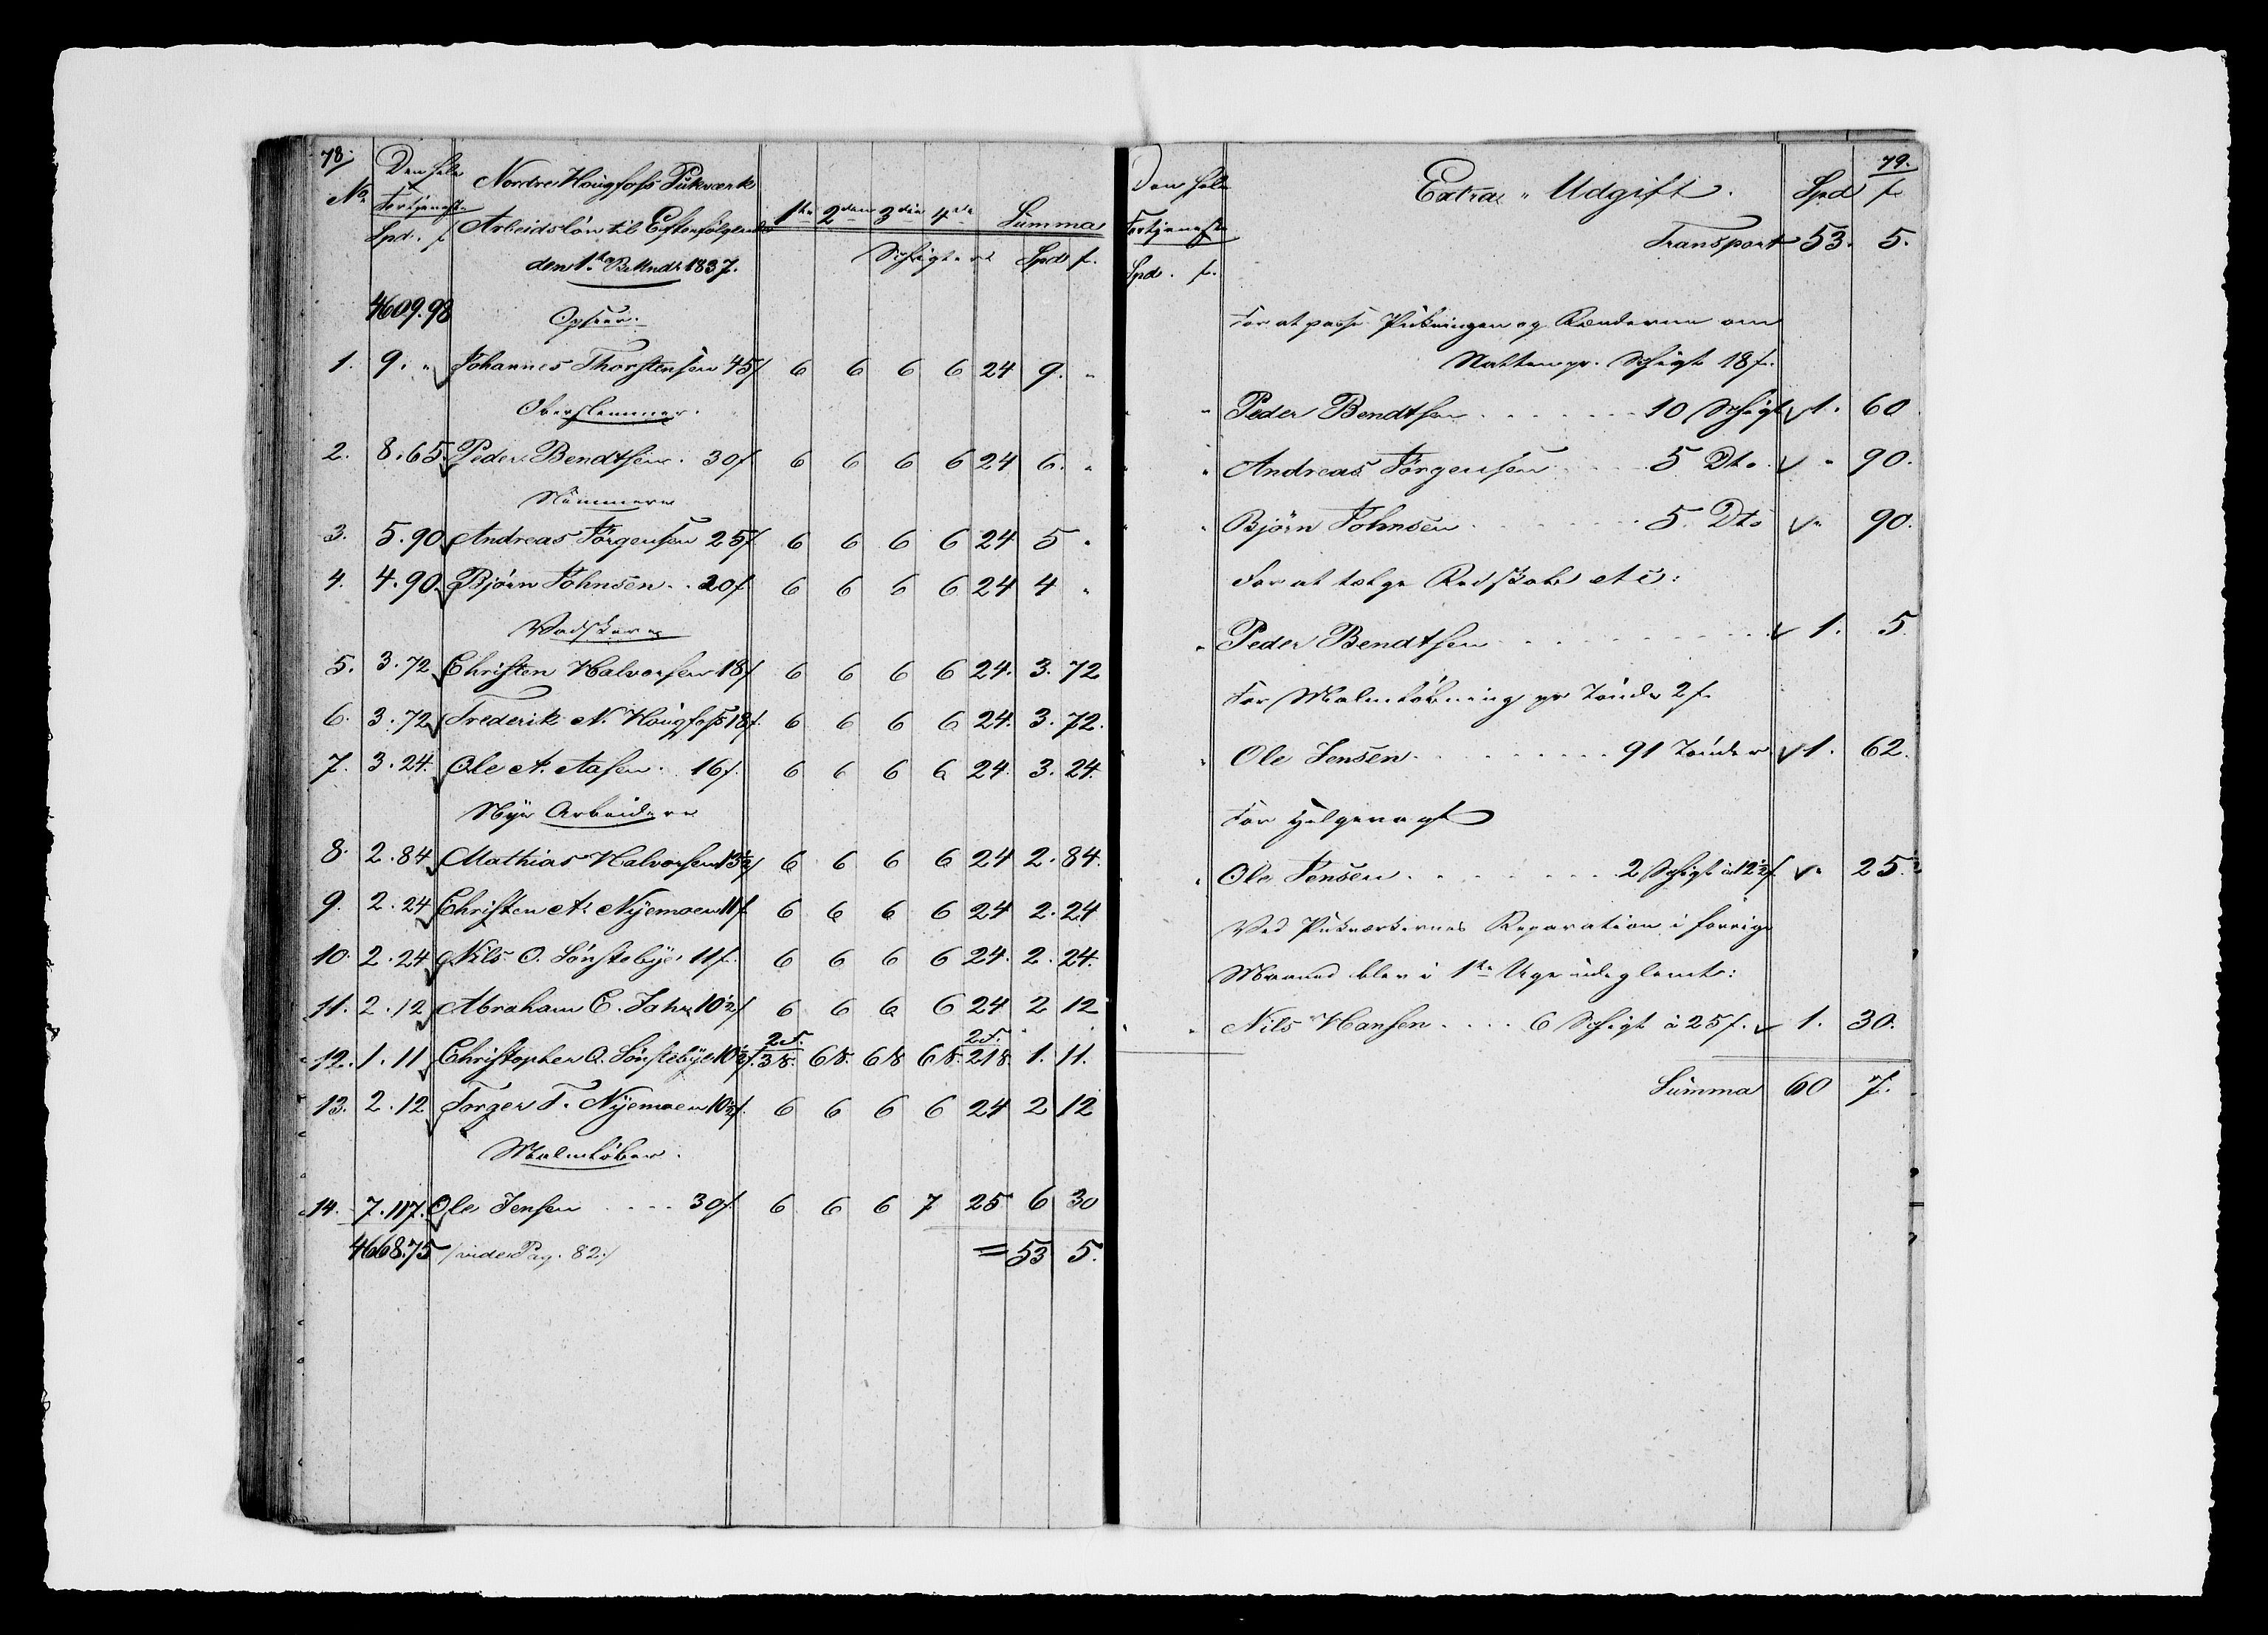 78.
No Den hele Fortjeneste Nordre Hougfoss Pukværk
Spd. f Arbeidsløn til Efterfølgende 1ste 2den 3die 4de Summa
den 1ste B. Mnd: 1837. Schigter Spd f.
4609.98 Opseer.
1. 9. „ Johannes Thorstensen 45f 6 6 6 6 24 9. „
Oberslemmer.
2. 8.65. Peder Bendtsen. 30f 6 6 6 6 24 6. „
Slemmere
3. 5.90 Andreas Jørgensen 25f 6 6 6 6 24 5 „
4. 4.90. Bjørn Johnsen.. 20f 6 6 6 6 24 4 „
Vadskere
5. 3.72 Christen Halvorsen 18f 6 6 6 6 24. 3. 72
6. 3.72 Frederik N. Hougfoss 18f. 6 6 6 6 24. 3. 72.
7. 3.24. Ole A. Aasen. 16f. 6 6 6 6 24. 3. 24.
Nye Arbeidere
8. 2.84 Mathias Halvorsen 13½f 6 6 6 6 24 2. 84.
9. 2.24 Christen A. Nyemoen 11f 6 6 6 6 24 2. 24
10. 2.24 Nils O. Sønstebye. 11f. 6 6 6 6 24. 2. 24.
11. 2.12 Abraham C. Jahr 10½f 6 6 6 6 24 2 12
2S. 2S.
12. 1.11 Christopher O. Sønstebye 10½f. 38. 68. 68 68. 218. 1. 11.
13. 2.12 Torger T. Nyemoen 10½f. 6 6 6 6 24 2 12
Malmkøber.
14. 7.117. Ole Jensen .... 30f. 6 6 6 7 25 6 30
4668.75 /vide Pag. 82./ = 53 5.
79.
Den hele Fortjeneste Extra „ Udgift. Spd f.
Spd. f. Transport 53. 5.
For at passe Pukningen og Renderne om
Natten pr. Schigt 18f.
Peder Bendtsen ...... 10 Schigt 1. 60
Andreas Jørgensen .... 5 Dto. „ 90.
Bjørn Johnsen ....... 5. Dto „ 90.
For at tælge Redskab etc:
Peder Bendtsen .......... 1. 5.
For Malmkøbning pr Tønde 2f.
Ole Jensen ........ 91 Tønder 1. 62.
For Helgevagt
Ole Jensen ........ 2 Schigt á 12½f. „ 25.
Ved Pukværkernes Reparation i forrige
Maaned blev i 1ste Uge udeglemt:
Nils Hansen .... 6 Schigt á 25f. 1. 30.
Summa 60 7.